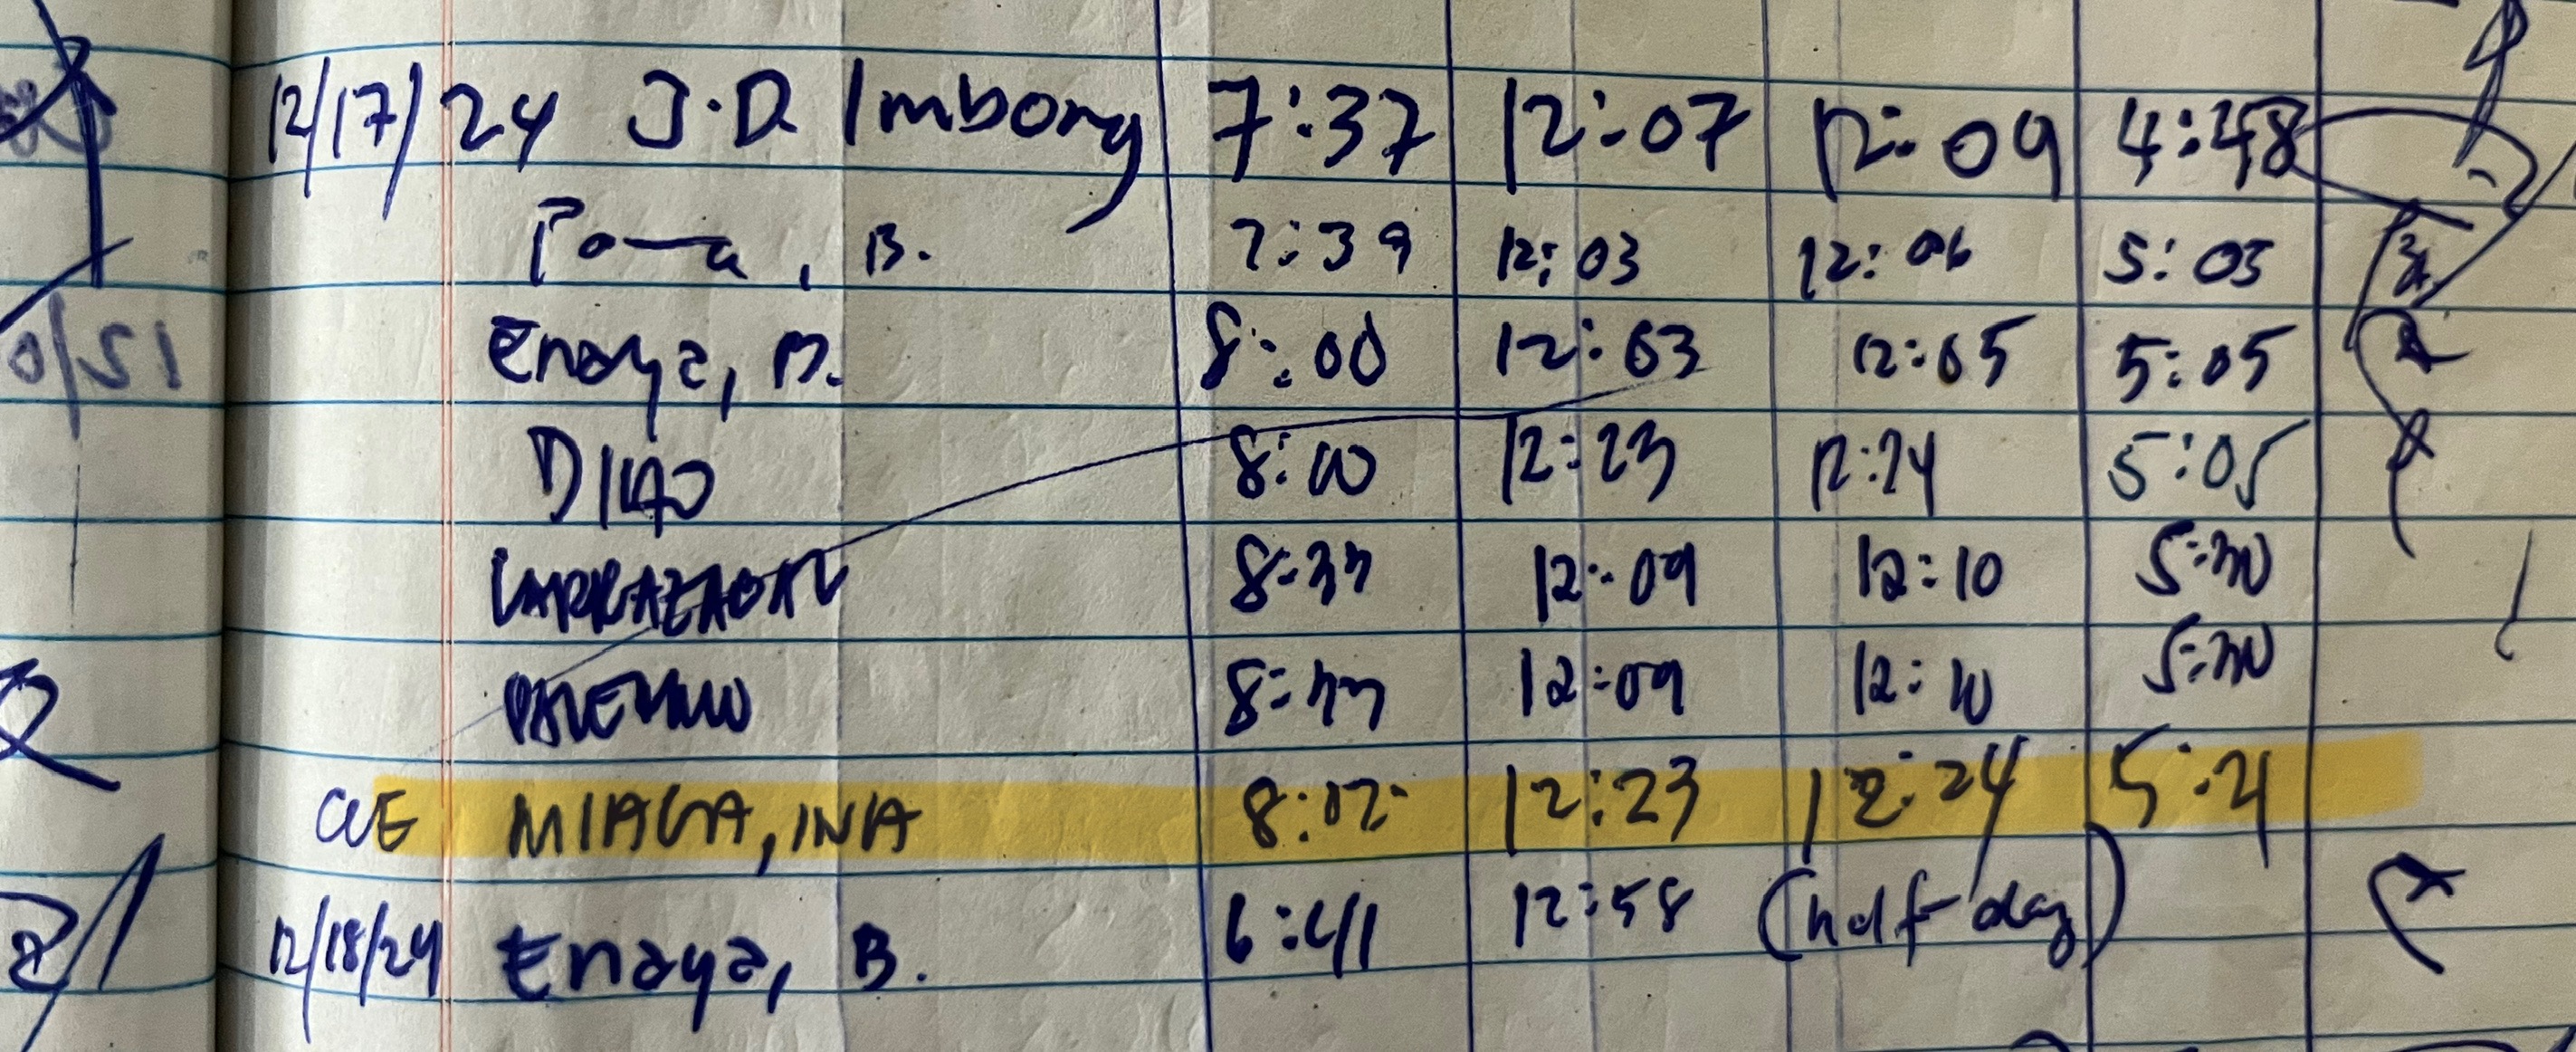 12/17/24 J.D. Imbong 7:37 12:07 12:09 4:48
B. 7:39 12:03 12:06 5:03
Enaya, B. 8:00 12:03 12:05 5:05
DILAO 8:00 12:23 12:24 5:05
12:09 12:10 5:30
12:09 12:10 5:30
MIAGA, INA 8:02 12:23 12:24 5:21
12/18/24 Enaya, B. 6:41 12:58 (half-day)